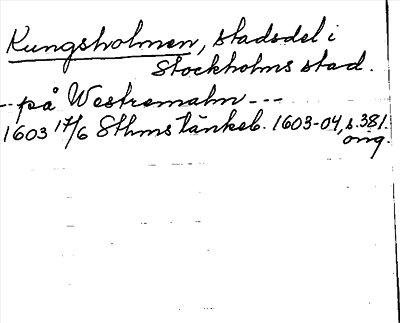 Kungsholmen, stadsdel i
Stockholms stad.
-- på Westremalm ---
1603 17/6 Sthms tänkeb. 1603-04, s.381.
orig.